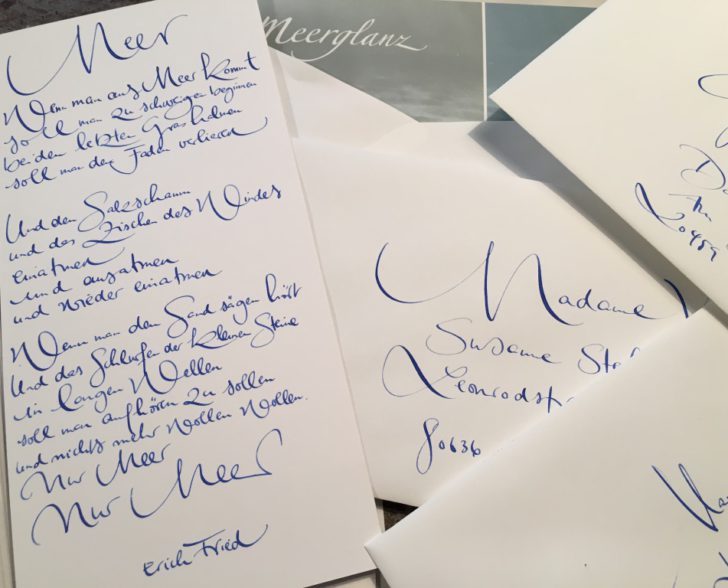 Meer
Wenn man ans Meer kommt
soll man zu schweigen beginnen
bei den letzten Grashalmen
soll man den Faden verlieren
Und den Salzschaum
und das Zischen des Windes
einatmen
und ausatmen
und wieder einatmen
Wenn man den Sand sägen hört
Und das Schlurfen der kleinen Steine
in langen Wellen
soll man aufhören zu sollen
und nichts mehr wollen wollen.
Nur Meer
Nur Meer
Erich Fried
Meerglanz
Madame
Susanne
Leonrodst
80636